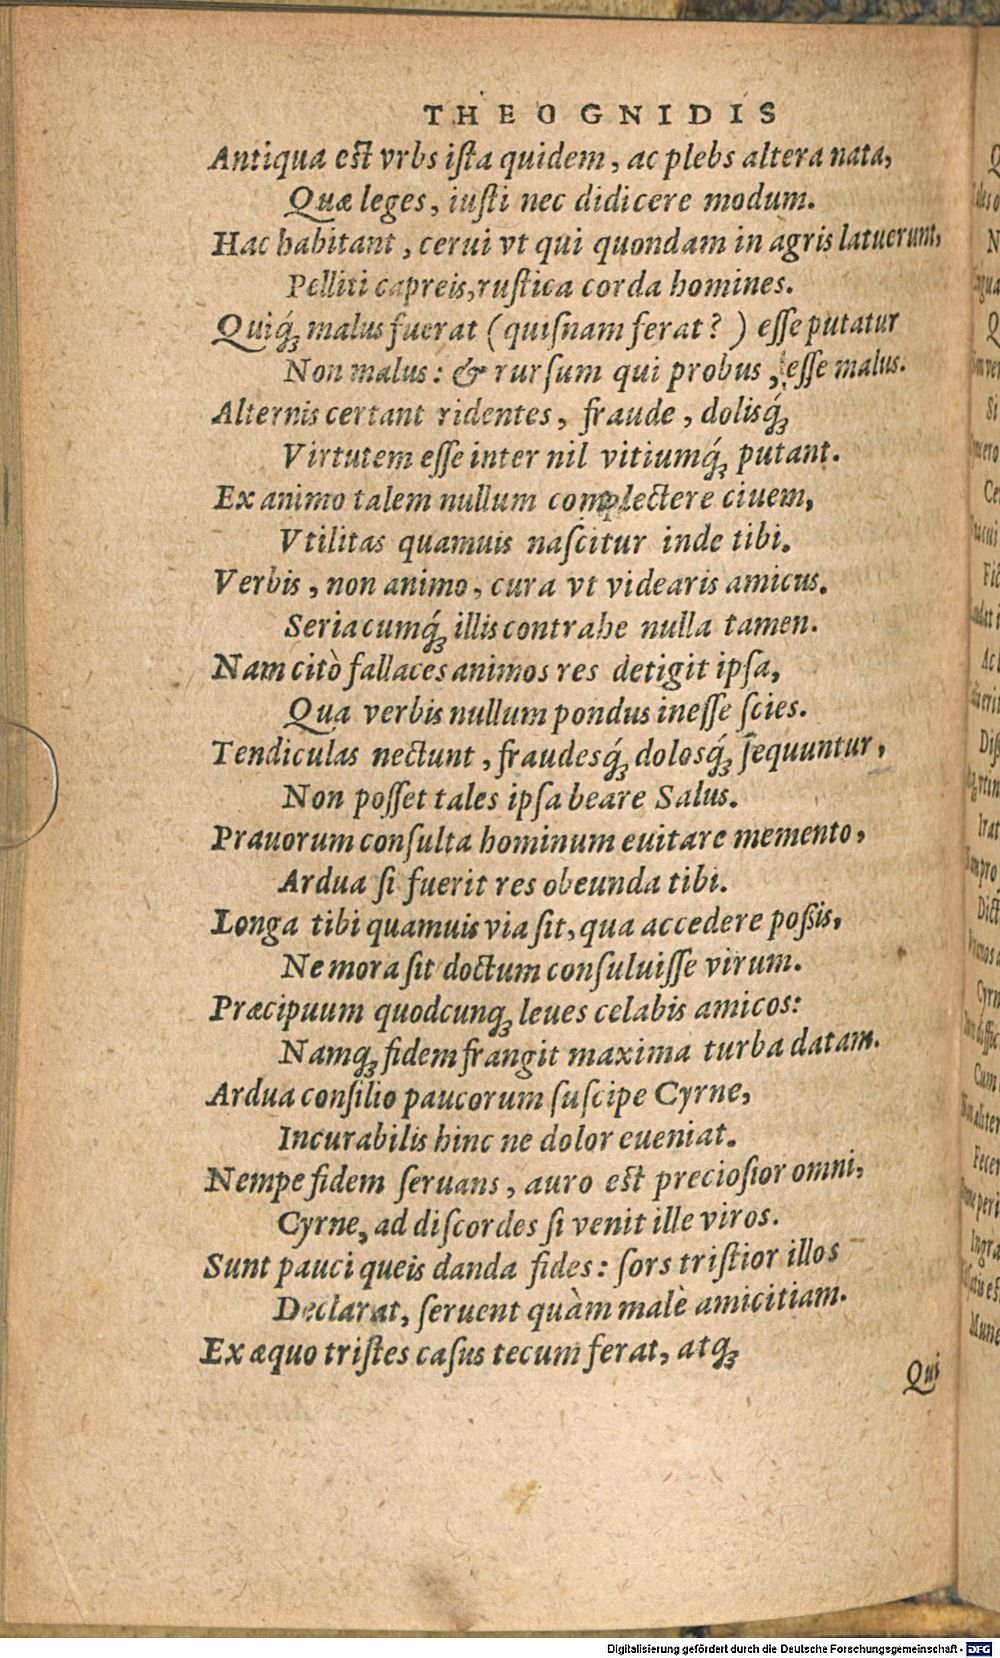 THEOGNIDIS
Antiqua est vrbs iſta quidem, ac plebs altera nata,
Quæ leges, iuſti nec didicere modum.
Hac habitant, cerui vt qui quondam in agris latuerunt,
Pelliti capreis, ruſtica corda homines.
Quiq́ꝫ malus fuerat (quiſnam ferat?) eſſe putatur
Non malus: & rurſum qui probus, eſſe malus.
Alternis certant ridentes, fraude, dolisq́ꝫ
Virtutem eſſe inter nil vitiumq́ꝫ putant.
Ex animo talem nullum complectere ciuem,
Vtilitas quamuis naſcitur inde tibi.
Verbis, non animo, cura vt videaris amicus.
Seria cumq́ꝫ illis contrahe nulla tamen.
Nam citò fallaces animos res detigit ipſa,
Qua verbis nullum pondus ineſſe ſcies.
Tendiculas nectunt, fraudesq́ꝫ dolosq́ꝫ ſequuntur,
Non poſſet tales ipſa beare Salus.
Prauorum conſulta hominum euitare memento,
Ardua ſi fuerit res obeunda tibi.
Longa tibi quamuis via ſit, qua accedere poßis,
Ne mora ſit doctum conſuluiſſe virum.
Præcipuum quodcunqꝫ leues celabis amicos:
Namqꝫ fidem frangit maxima turba datam.
Ardua conſilio paucorum ſuſcipe Cyrne,
Incurabilis hinc ne dolor eueniat.
Nempe fidem ſeruans, auro est precioſior omni,
Cyrne, ad diſcordes ſi venit ille viros.
Sunt pauci queis danda fides: ſors triſtior illos
Declarat, ſeruent quàm malè amicitiam.
Ex æquo triſtes caſus tecum ferat, atqꝫ
Qui
Digitalisierung gefördert durch die Deutsche Forschungsgemeinschaft - DFG